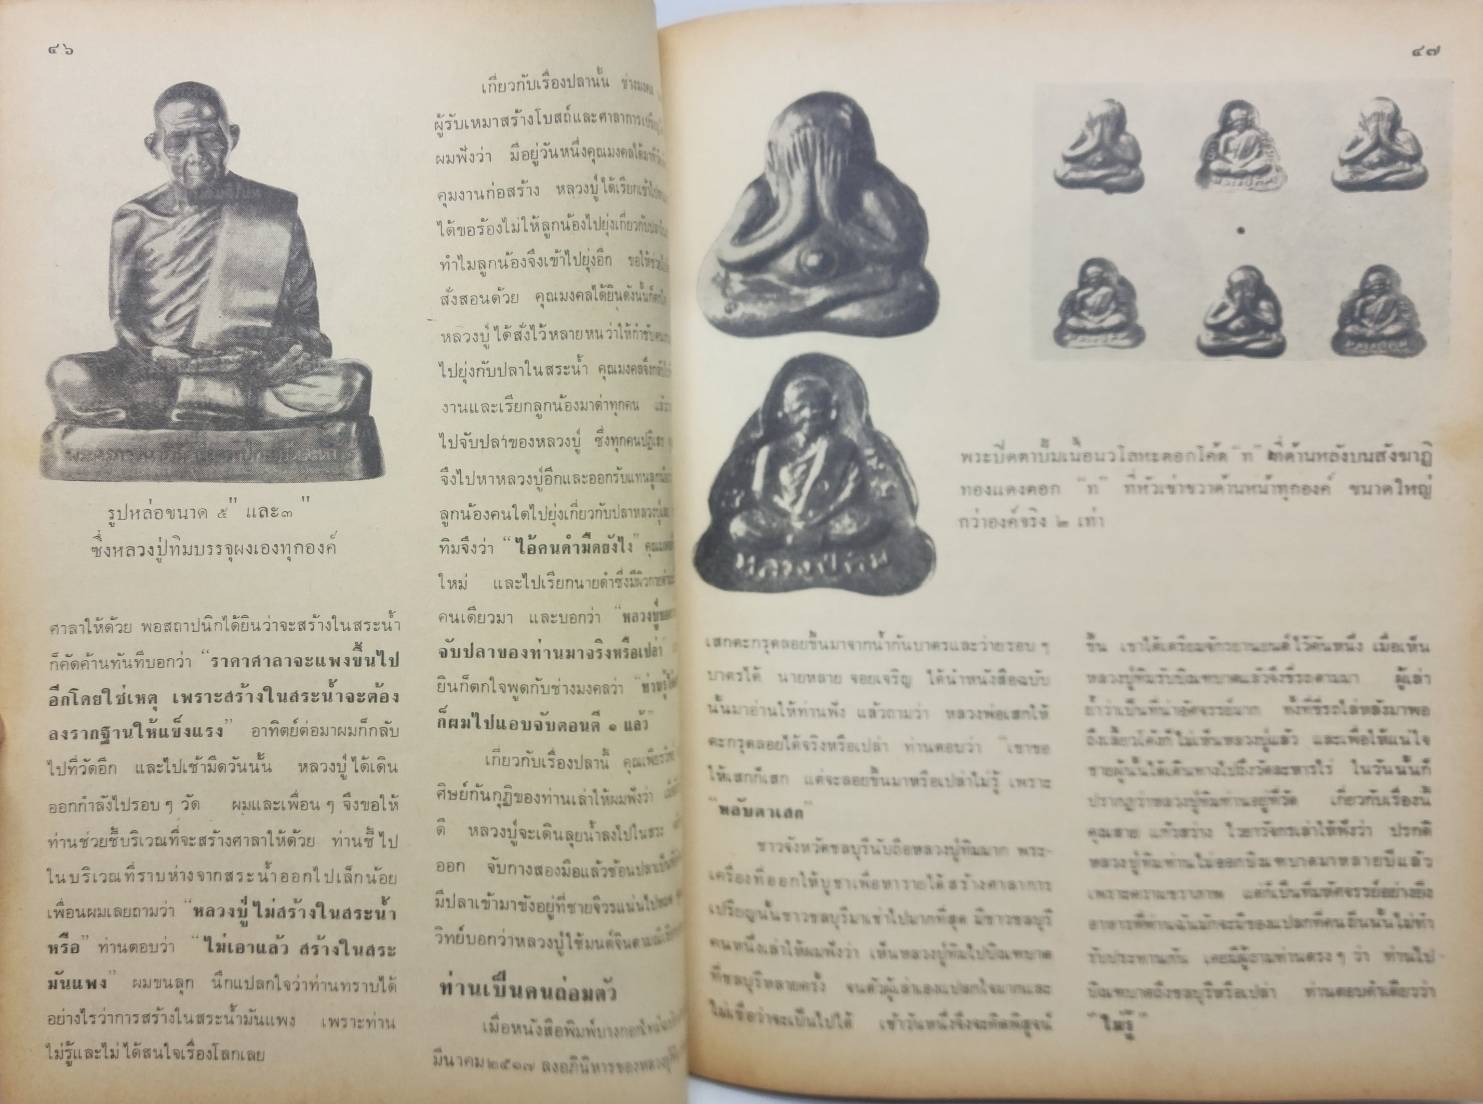 ๔๖
รูปหล่อขนาด ๕" และ๓"
ซึ่งหลวงปู่ทิมบรรจุผงเองทุกองค์
ศาลาให้ด้วย พอสถาปนิกได้ยินว่าจะสร้างในสระน้ำ
ก็คัดค้านทันทีบอกว่า "ราคาศาลาจะแพงขึ้นไป
อีกโดยใช่เหตุ เพราะสร้างในสระน้ำจะต้อง
ลงรากฐานให้แข็งแรง" อาทิตย์ต่อมาผมก็กลับ
ไปที่วัดอีก และไปเช้ามืดวันนั้น หลวงปู่ได้เดิน
ออกกำลังไปรอบๆ วัด ผมและเพื่อนๆ จึงขอให้
ท่านช่วยชี้บริเวณที่จะสร้างศาลาให้ด้วย ท่านชี้ไป
ในบริเวณที่ราบห่างจากสระน้ำออกไปเล็กน้อย
เพื่อนผมเลยถามว่า "หลวงปู่ไม่สร้างในสระน้ำ
หรือ" ท่านตอบว่า "ไม่เอาแล้ว สร้างในสระ
มันแพง" ผมขนลุก นึกแปลกใจว่าท่านทราบได้
อย่างไรว่าการสร้างในสระน้ำมันแพง เพราะท่าน
ไม่รู้และไม่ได้สนใจเรื่องโลกเลย
เกี่ยวกับเรื่องปลานั้น ช่างมงคล
ผู้รับเหมาสร้างโบสถ์และศาลาการเปรียญ
ผมฟังว่า มีอยู่วันหนึ่งคุณมงคลได้มา
คุมงานก่อสร้าง หลวงปู่ได้เรียกเข้าไป
ได้ขอร้องไม่ให้ลูกน้องไปยุ่งเกี่ยวกับปลา
ทำไมลูกน้องจึงเข้าไปยุ่งอีก ขอให้ช่วย
สั่งสอนด้วย คุณมงคลได้ยินดังนั้นก็
หลวงปู่ได้สั่งไว้หลายหนว่าให้กำชับ
ไปยุ่งกับปลาในสระน้ำ คุณมงคลจึงกลับ
งานและเรียกลูกน้องมาด่าทุกคน
ไปจับปลาของหลวงปู่ ซึ่งทุกคนปฏิเสธ
จึงไปหาหลวงปู่อีกและออกรับแทนลูกน้อง
ลูกน้องคนใดไปยุ่งเกี่ยวกับปลาหลวงปู่
ทิมจึงว่า "ไอ้คนดำมืดยังไง"
ใหม่ และไปเรียกนายดำซึ่งมีผิวกาย
คนเดียวมา และบอกว่า "หลวงปู่
จับปลาของท่านมาจริงหรือเปล่า"
ยินก็ตกใจพูดกับช่างมงคลว่า "ท่านรู้
ก็ผมไปแอบจับตอนตี ๑ แล้ว"
เกี่ยวกับเรื่องปลานี้ คุณเพียรวิทย์
ศิษย์ก้นกุฏิของท่านเล่าให้ผมฟังว่า
ดี หลวงปู่จะเดินลุยน้ำลงไปในสระ
ออก จับกางสองมือแล้วช้อนปลา
มีปลาเข้ามาขังอยู่ที่ชายจีวรแน่นไปหมด
วิทย์บอกว่าหลวงปู่ใช้มนต์จินดามณี
ท่านเป็นคนถ่อมตัว
เมื่อหนังสือพิมพ์บางกอกไทม์
มีนาคม๒๕๑๗ ลงอภินิหารของหลวงปู่
๔๗
หลวงปู่ทิม
พระปิดตาปั๊มเนื้อนวโลหะตอกโค้ด "ท" ที่ด้านหลังบนสังฆาฏิ
ทองแดงตอก "ท" ที่หัวเข่าขวาด้านหน้าทุกองค์ ขนาดใหญ่
กว่าองค์จริง ๒ เท่า
เสกตะกรุดลอยขึ้นมาจากน้ำก้นบาตรและว่ายรอบๆ
บาตรได้ นายหลาย จอยเจริญ ได้นำหนังสือฉบับ
นั้นมาอ่านให้ท่านฟัง แล้วถามว่า หลวงพ่อเสกให้
ตะกรุดลอยได้จริงหรือเปล่า ท่านตอบว่า "เขาขอ
ให้เสกก็เสก แต่จะลอยขึ้นมาหรือเปล่าไม่รู้ เพราะ
"หลับตาเสก"
ชาวจังหวัดชลบุรีนับถือหลวงปู่ทิมมาก พระ-
เครื่องที่ออกให้บูชาเพื่อหารายได้สร้างศาลาการ
เปรียญนั้นชาวชลบุรีมาเช่าไปมากที่สุด มีชาวชลบุรี
คนหนึ่งเล่าให้ผมฟังว่า เห็นหลวงปู่ทิมไปบิณฑบาต
ที่ชลบุรีหลายครั้ง จนตัวผู้เล่าเองแปลกใจมากและ
ไม่เชื่อว่าจะเป็นไปได้ เช้าวันหนึ่งจึงจะคิดพิสูจน์
ขึ้น เขาได้เตรียมจักรยานยนต์ไว้คันหนึ่ง เมื่อเห็น
หลวงปู่ทิมรับบิณฑบาตแล้วจึงขี่รถตามมา ผู้เล่า
ย้ำว่าเป็นที่น่าอัศจรรย์มาก ทั้งที่ขี่รถไล่หลังมาพอ
ถึงเลี้ยวโค้งก็ไม่เห็นหลวงปู่แล้ว และเพื่อให้แน่ใจ
ชายผู้นั้นได้เดินทางไปถึงวัดละหารไร่ ในวันนั้นก็
ปรากฏว่าหลวงปู่ทิมท่านอยู่ที่วัด เกี่ยวกับเรื่องนี้
คุณสาย แก้วสว่าง ไวยาวัจกรเล่าให้ฟังว่า ปรกติ
หลวงปู่ทิมท่านไม่ออกบิณฑบาตมาหลายปีแล้ว
เพราะความชราภาพ แต่ก็เป็นที่มหัศจรรย์อย่างยิ่ง
อาหารที่ท่านฉันมักจะมีของแปลกที่คนอื่นนั้นไม่ทำ
รับประทานกัน เคยมีผู้ถามท่านตรงๆ ว่า ท่านไป
บิณฑบาตถึงชลบุรีหรือเปล่า ท่านตอบคำเดียวว่า
"ไม่รู้"